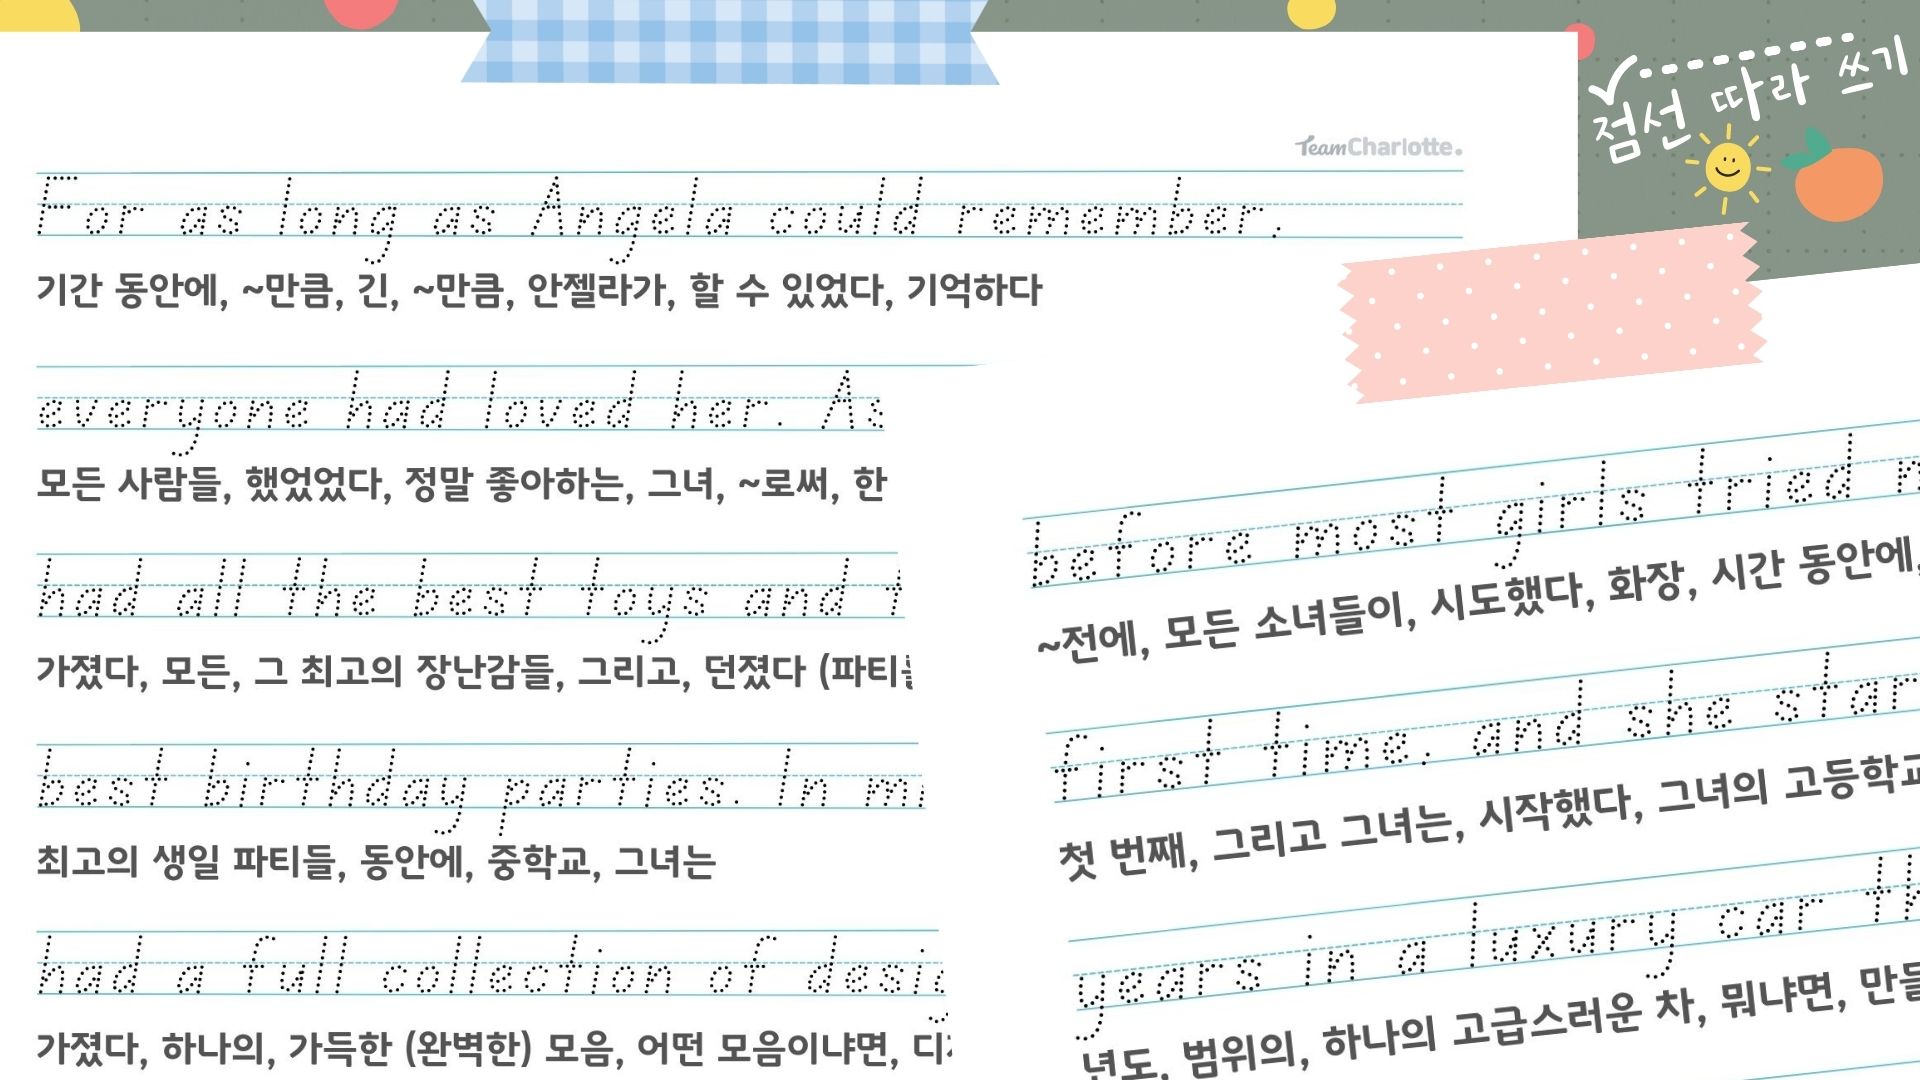 점선 따라 쓰기
TeamCharlotte.
For as long as Angela could remember,
기간 동안에, ~만큼, 긴, ~만큼, 안젤라가, 할 수 있었다, 기억하다
everyone had loved her. As
모든 사람들, 했었었다, 정말 좋아하는, 그녀, ~로써, 한
had all the best toys and t
가졌다, 모든, 그 최고의 장난감들, 그리고, 던졌다 (파티를
best birthday parties. In mi
최고의 생일 파티들, 동안에, 중학교, 그녀는
had a full collection of desig
가졌다, 하나의, 가득한 (완벽한) 모음, 어떤 모음이냐면,
before most girls tried
~전에, 모든 소녀들이, 시도했다, 화장, 시간 동안에,
first time, and she star
첫 번째, 그리고 그녀는, 시작했다, 그녀의 고등학교
years in a luxury car th
년도, 범위의, 하나의 고급스러운 차, 뭐냐면, 만들